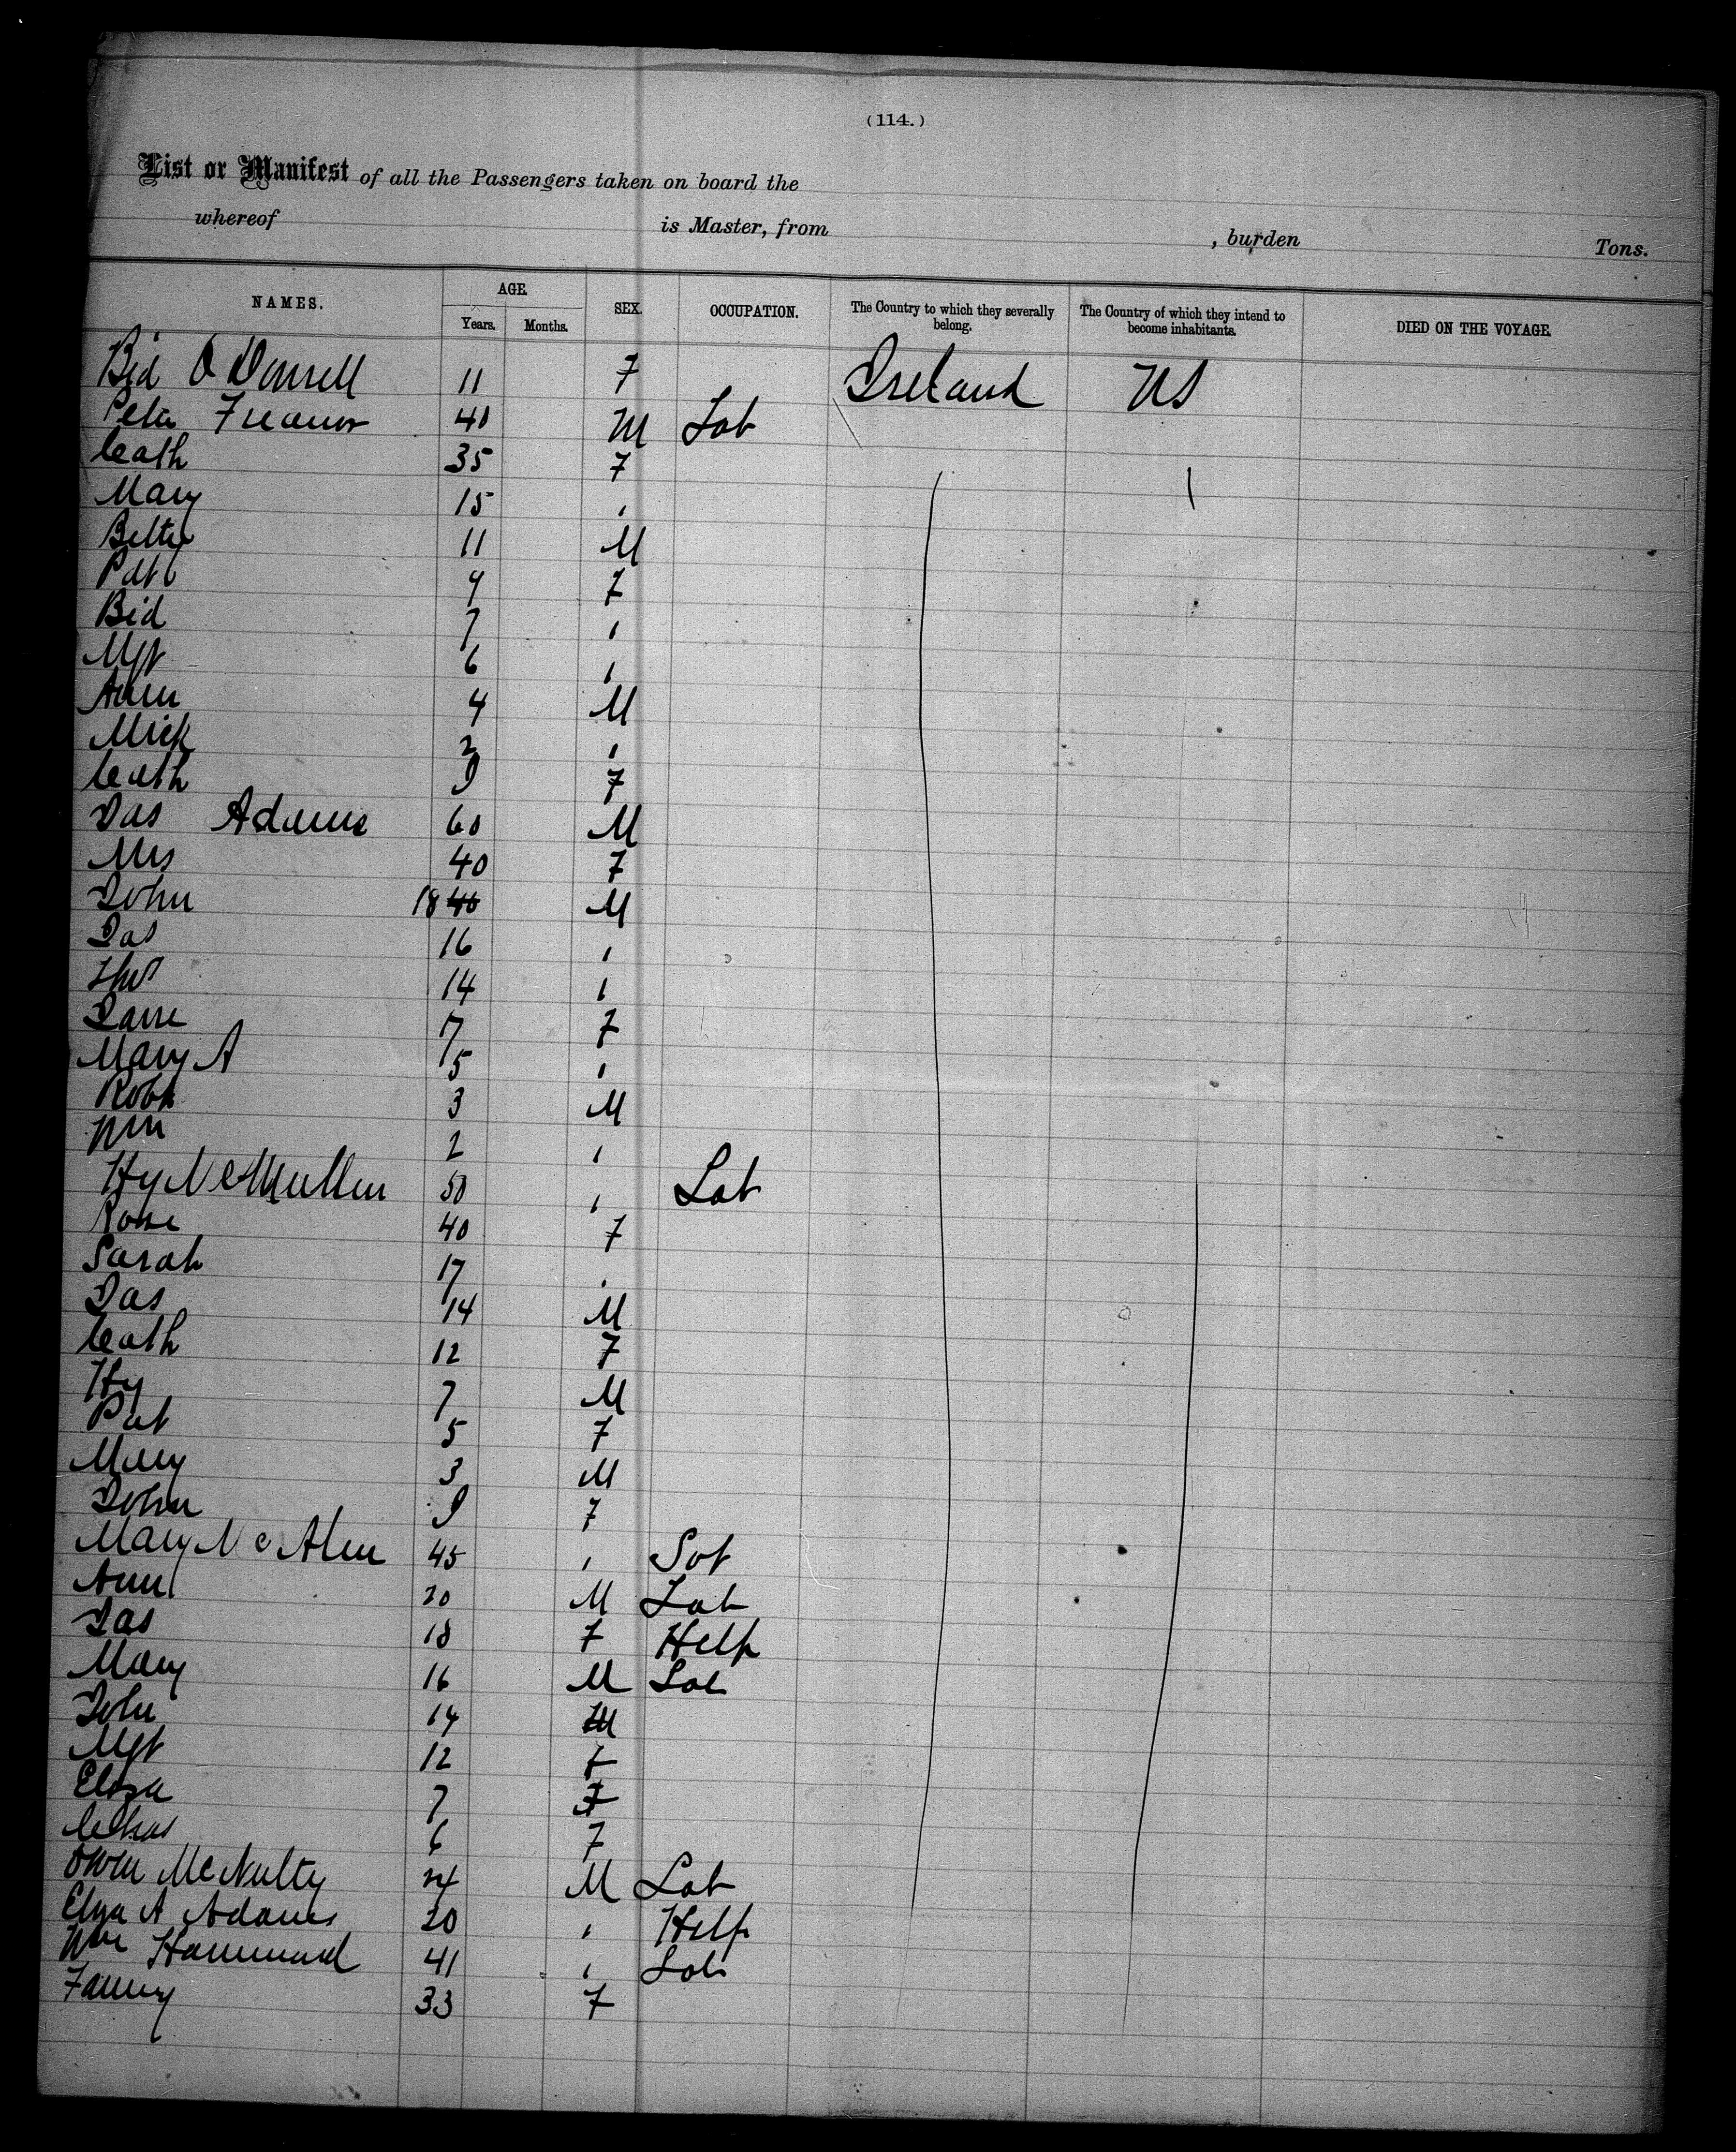 (114.)
List or Manifest of all the Passengers taken on board the
whereof is Master, from , burden Tons.
NAMES. AGE. SEX. OCCUPATION. The Country to which they severally belong. The Country of which they intend to become inhabitants. DIED ON THE VOYAGE.
Years. Months.
Bid O Donnell 11 F Ireland US
Peter 40 M Lab
Cath 35 F
Mary 15 "
11 M
Pat 9 F
Bid 7 "
Mgt 6 "
4 M
Mick 2 "
Cath F
Jas Adams 60 M
Mrs 40 F
John 18 40 M
Jas 16 "
Thos 14 "
Jane 7 F
Mary A 5 "
Robt 3 M
Wm 2 "
Hy McMullen 50 " Lab
Rose 40 F
Sarah 17 "
Jas 14 M
Cath 12 F
Hy 7 M
Pat 5 F
Mary 3 M
John F
Mary 45 "
Ann 20 M Lab
Jas 18 F Help
Mary 16 M Lab
John 14 M
Mgt 12 F
Eliza 7 F
Chas 6 F
Owen McNulty 24 M Lab
Eliza A Adams 20 " Help
Wm Hammond 41 " Lab
Fanny 33 F